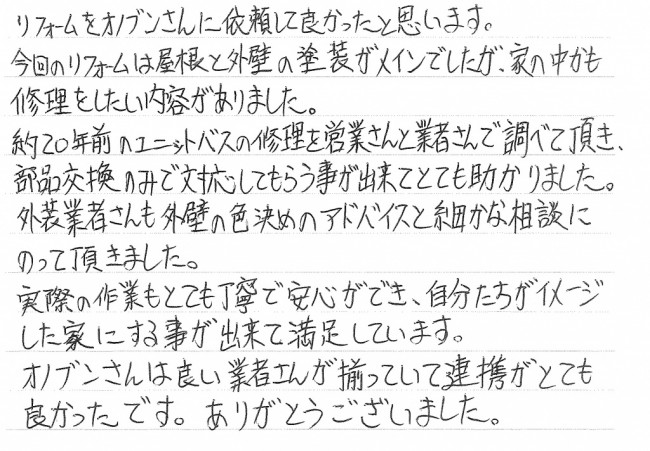 リフォームをオノブンさんに依頼して良かったと思います。
今回のリフォームは屋根と外壁の塗装がメインでしたが、家の中かも
修理をしたい内容がありました。
約20年前のユニットバスの修理を営業さんと業者さんで調べて頂き、
部品交換のみで対応してもらう事が出来てとても助かりました。
外装業者さんも外壁の色決めのアドバイスと細かな相談に
のって頂きました。
実際の作業もとても丁寧で安心ができ、自分たちがイメージ
した家にする事が出来て満足しています。
オノブンさんは良い業者さんが揃っていて連携がとても
良かったです。ありがとうございました。